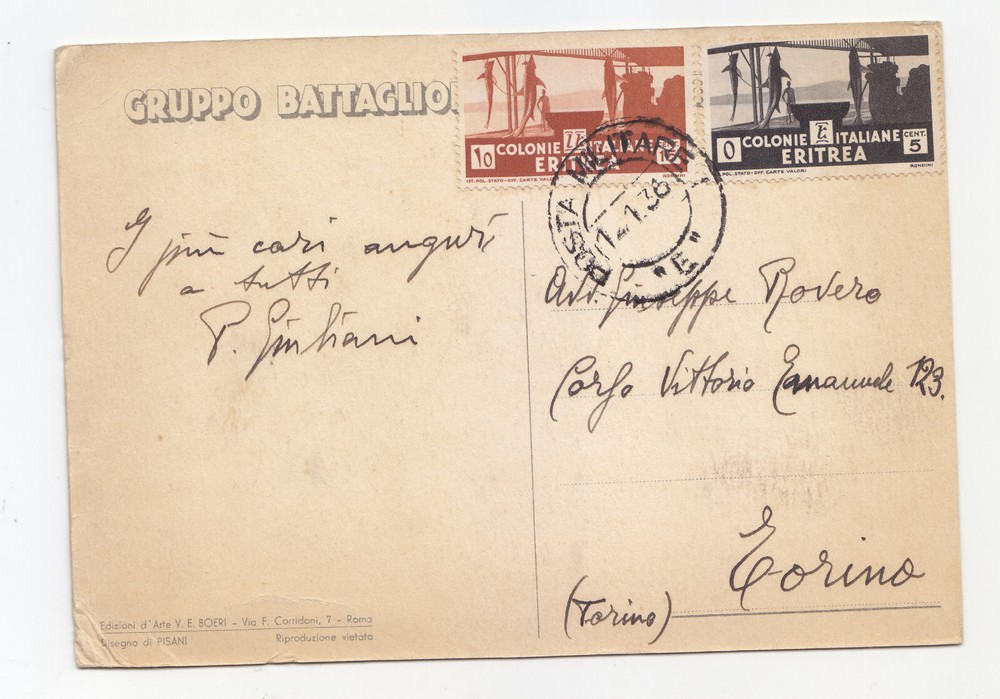 GRUPPO BATTAGLIO
10 COLONIE ITALIANE
ERITREA
IST. POL. STATO - OFF. CARTE VALORI
COLONIE ITALIANE CENT. 5
ERITREA
POL. STATO - OFF. CARTE VALORI
RONDINI
POSTA MILITARE
12.1.36
"E"
I più cari auguri
a tutti
P. Giuliani
Avv. Giuseppe Rovero
Corso Vittorio Emanuele 123.
Torino
(Torino)
Edizioni d'Arte V. E. BOERI - Via F. Corridoni, 7 - Roma
Disegno di PISANI Riproduzione vietata